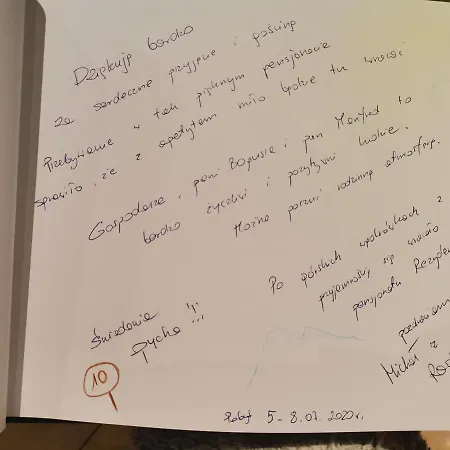 Dziękuję bardzo
za serdeczne przyjęcie i gościnę
Przebywanie w tak pięknym pensjonacie
sprawiło, że z apetytem miło będzie tu wracać
Gospodarze, pani Bogusia i pan Manfred to
bardzo życzliwi i pozytywni ludzie.
Można poczuć rodzinną atmosferę.
Po górskich wędrówkach z
przyjemnością się wracało
pensjonatu
Śniadania
pycha !!!
10
Michał z
Pobyt 5-8.07.2020 r.